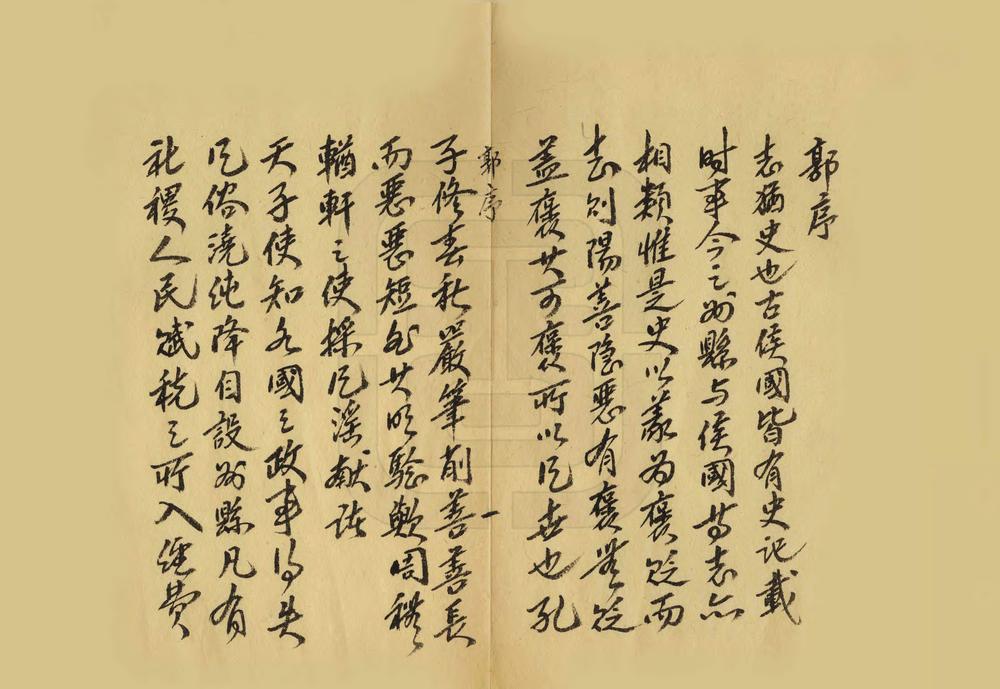 郭序
志猶史也古侯國皆有史記載
时事今之州縣与侯國等志亦
相類惟是史以義为褒貶而
志则陽善隐惡有褒無貶
盖褒其可褒所以风世也孔
郭序
子修春秋嚴筆削善善長
而惡惡短
明驗歟周禮
輶軒之使採风谣献诸
天子使知各國之政事得失
风俗澆纯降自設州縣凡有
社稷人民賦税之所入经费
一